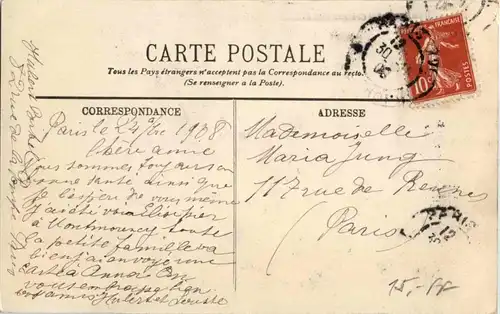 CARTE POSTALE
Tous les Pays étrangers n'acceptent pas la Correspondance au recto
(Se renseigner à la Poste).
CORRESPONDANCE
Paris le 24 1908
Chère amie
nous sommes toujours en
bonne santé ainsi que
je l'espère de vous même
j'ai été
à Montmorency toute
la petite famille va
bien j'ai envoyé une
carte à Anna On
vous embrasse bien
vos amis Hubert et Louise
ADRESSE
Mademoiselle
Maria Jung
117 rue de Rennes
(Paris)
RÉPUBLIQUE FRANÇAISE
10c
POSTES
PARIS
15,-